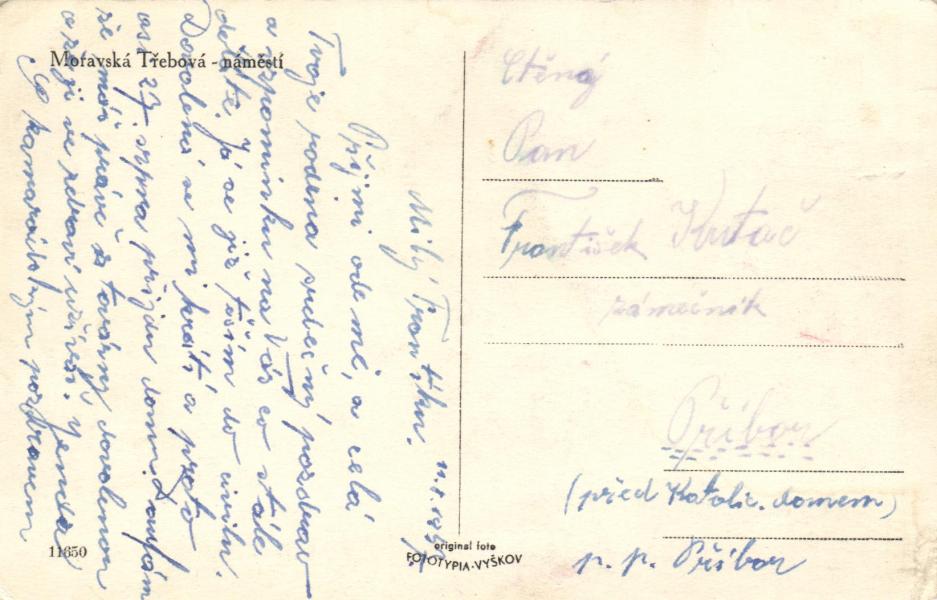 Moravská Třebová - náměstí
Milý Frantíku.
Přijmi ode mě, a celá
Tvoje rodina srdečný pozdrav
a vzpomínku na Vás co stále
děláte. Já se již těším do civilu.
Dovolená se mi krátí a proto
asi 27 srpna přijdu domu. Doufám
že máš práve z továrny dovolenou
a ji ve zdraví užíváš. Jenda
S kamarádským pozdravem
11650
original foto
FOTOTYPIA-VYŠKOV
Ctěný
Pan
František
zámečník
Příbor
(před Katolic. domem)
p. p. Příbor